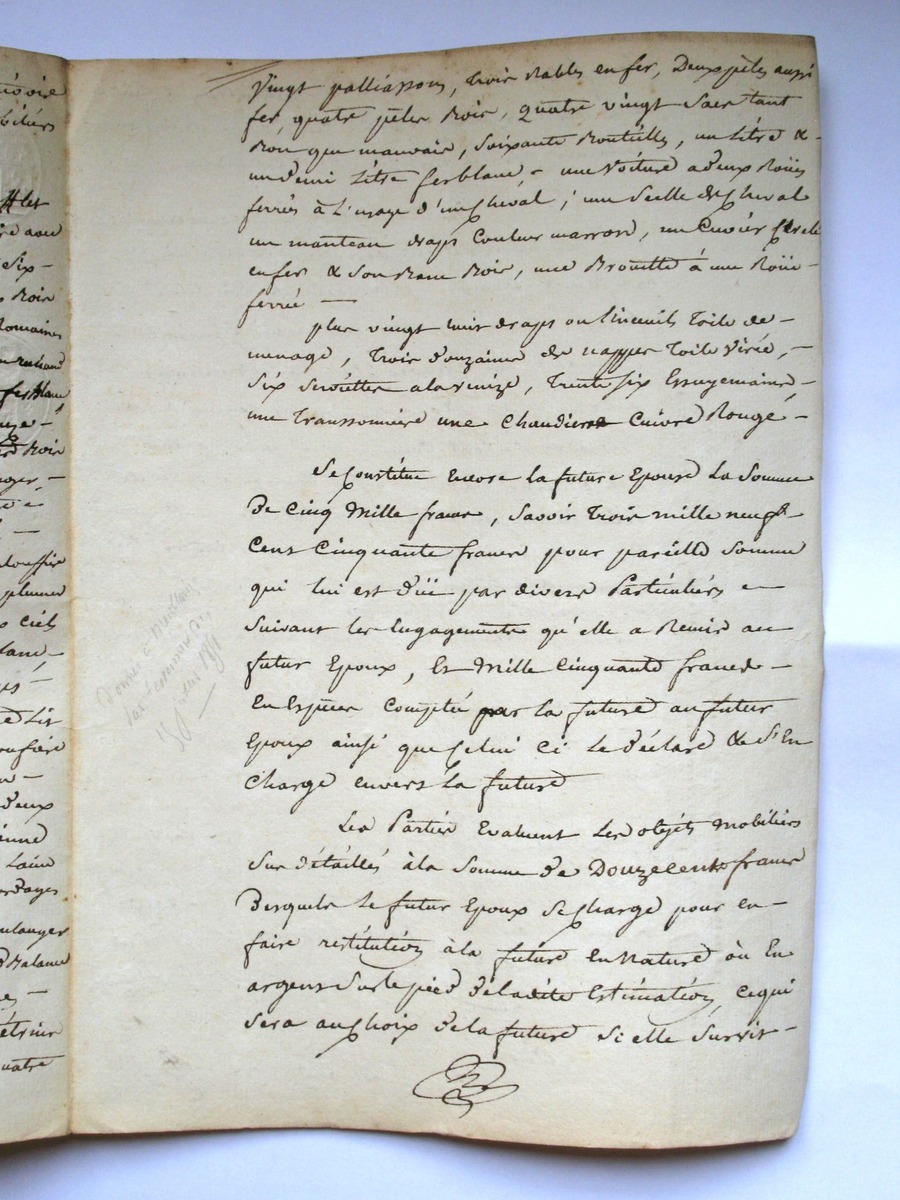 Vingt palliassons, trois Rables en fer, Deux pèles aussi
fer, quatre pèles Bois, quatre vingt Sacs tant
Bon que mauvais, Soixante Bouteilles, un Litre &
un demi Litre ferblanc, une Voiture a deux Roües
ferrés à L'usage d'un Cheval; une Selle de Cheval
un manteau draps Couleur marron, un Cuvier
en fer & Son Banc Bois, une Brouette à une Roüe
ferrée —
plus vingt huit draps ou Linceuils Toile de
menage, trois douzaine de nappes Toile Virée,
Six Serviettes a la venize, trente six Essuyemains
une une Chaudiere Cuivre Rouge
Se Constitue encore la future Epouse La Somme
De Cinq Mille francs, Savoir trois mille neuf
Cens Cinquante francs pour pareille Somme
qui lui est düe par divers Particuliers
Suivant les Engagements qu'elle a Remis au
futur Epoux, Et Mille Cinquante francs
En Espèces Comptée par la future au futur
Epoux ainsi que Celui Ci Le déclare & S'En
Charge envers la future
Les Parties Evaluent Les objets mobiliers
Sus détaillés à la Somme de Douze cents francs
Desquels Le futur Epoux Se Charge pour en
faire restitution à la future En Nature où En
argent Sur le pied de ladite Estimation, ce qui
Sera au Choix de la future Si elle Survit